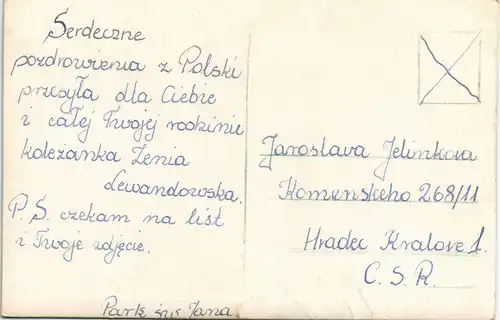 Serdeczne
pozdrowienia z Polski
przesyła dla Ciebie
i całej Twojej rodzinie
koleżanka Zenia
Lewandowska.
P.S. czekam na list
i Twoje zdjęcie.
Park Jana.
Jaroslava Jelinkova
Komenskeho 268/11
Hradec Kralove 1.
C.S.R.